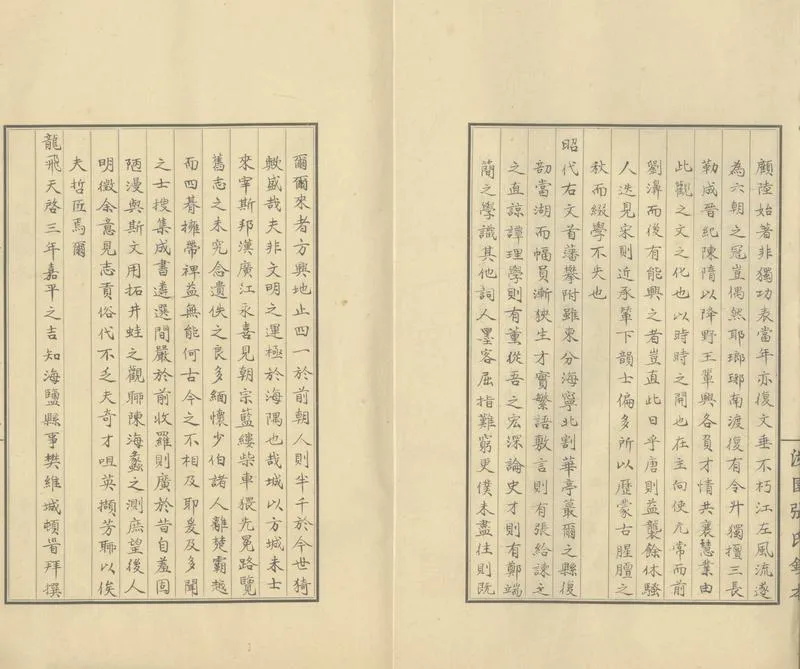 顧陸始著非獨功表當年亦復文垂不朽江左風流遂
為六朝之冠豈偶然耶瑯琊南渡復有令升獨擅三長
勒成晉紀陳隋以降野王輩興各負才情共襄慧業由
此觀之文之化也以時時之開也在主向使亢常而前
劉濞而後有能興之者豈直此日乎唐則益襲餘休騷
人迭見宋則近承輦下韻士偏多所以歷蒙古腥膻之
秋而綴學不失也
昭代右文首藩攀附雖東分海寧北割華亭蕞爾之縣復
剖當湖而幅員漸狹生才實繁語敷言則有張給諫之
之直諒譚理學則有董從吾之宏深論史才則有鄭端
簡之學識其他詞人墨客屈指難窮更僕未盡往則既
爾爾來者方興地止四一於前朝人則半千於今世猗
歟盛哉夫非文明之運極於海隅也哉城以方城末士
來宰斯邦漢廣江永喜見朝宗藍縷柴車猥先冕路覽
舊志之未究念遺佚之良多緬懷少伯諸人離楚霸越
而四朞擁帶裨益無能何古今之不相及耶爰及多聞
之士搜集成書遴選間嚴於前收羅則廣於昔自羞固
陋漫與斯文用拓井蛙之觀聊陳海蠡之測庶望後人
明徵余意見志貢俗代不乏夫奇才咀英擷芳聯以俟
夫哲匠焉爾
龍飛天啓三年嘉平之吉知海鹽縣事樊維城頓首拜撰
涉園張氏鈔本